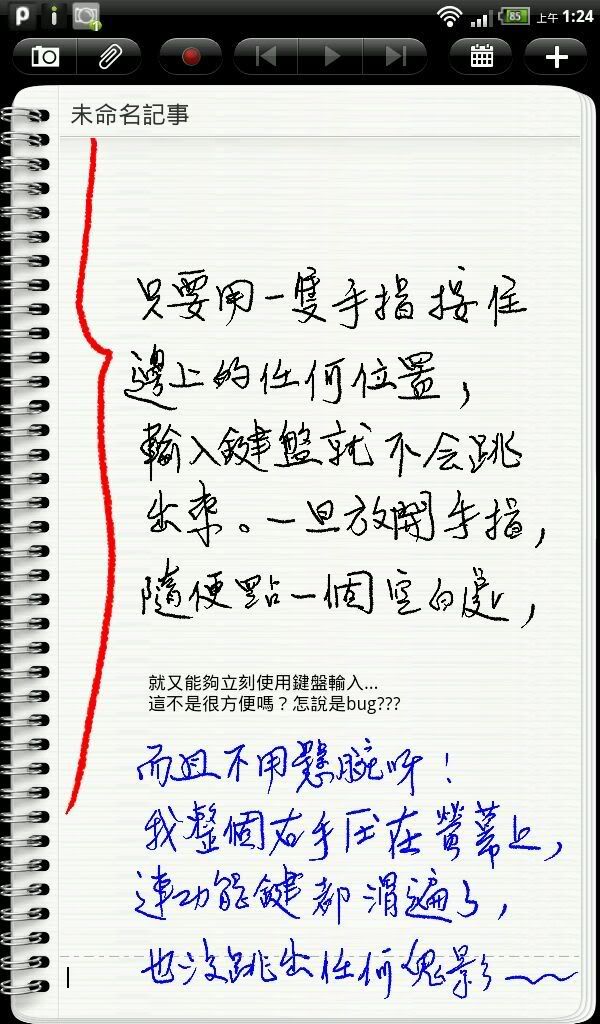 85 上午 1:24
未命名記事
只要用一隻手指按住
邊上的任何位置，
輸入鍵盤就不会跳
出來。一旦放開手指，
隨便點一個空白處，
就又能夠立刻使用鍵盤輸入...
這不是很方便嗎？怎說是bug???
而且不用懸腕呀！
我整個右手压在螢幕上，
連功能鍵都滑遍了，
也沒跳出任何鬼影～～